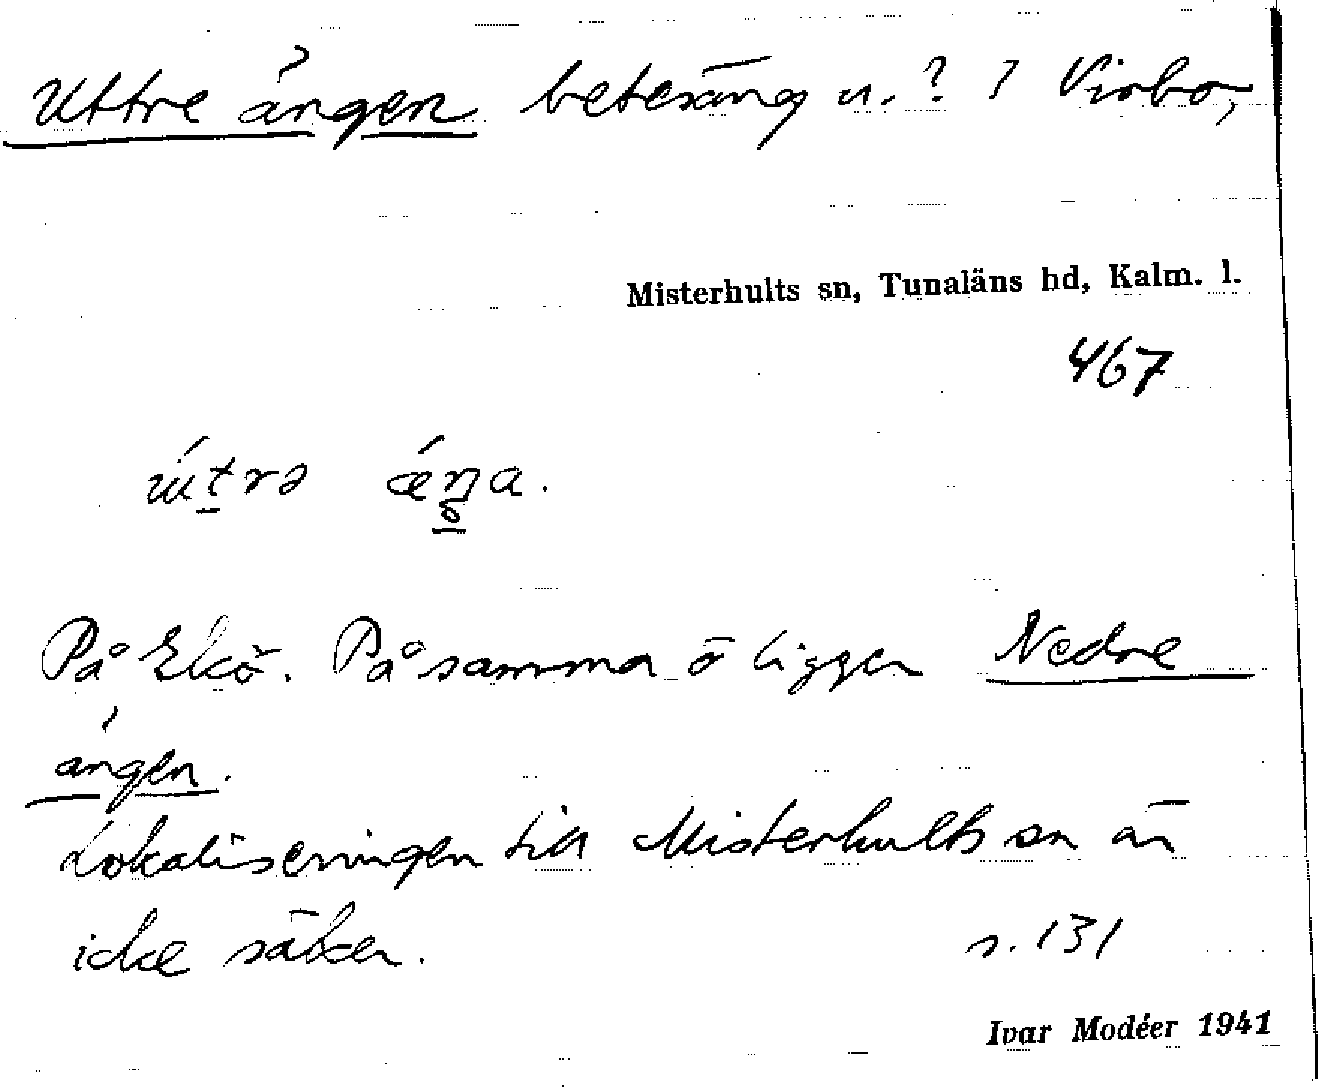 Uttre ängen betesäng u. ? ? Virbo,
Misterhults sn, Tunaläns hd, Kalm. l.
467
På Elsö. På samma ö ligger Nedre
ängen.
Lokaliseringen till Misterhults sn är
icke säker. s. 131
Ivar Modéer 1941